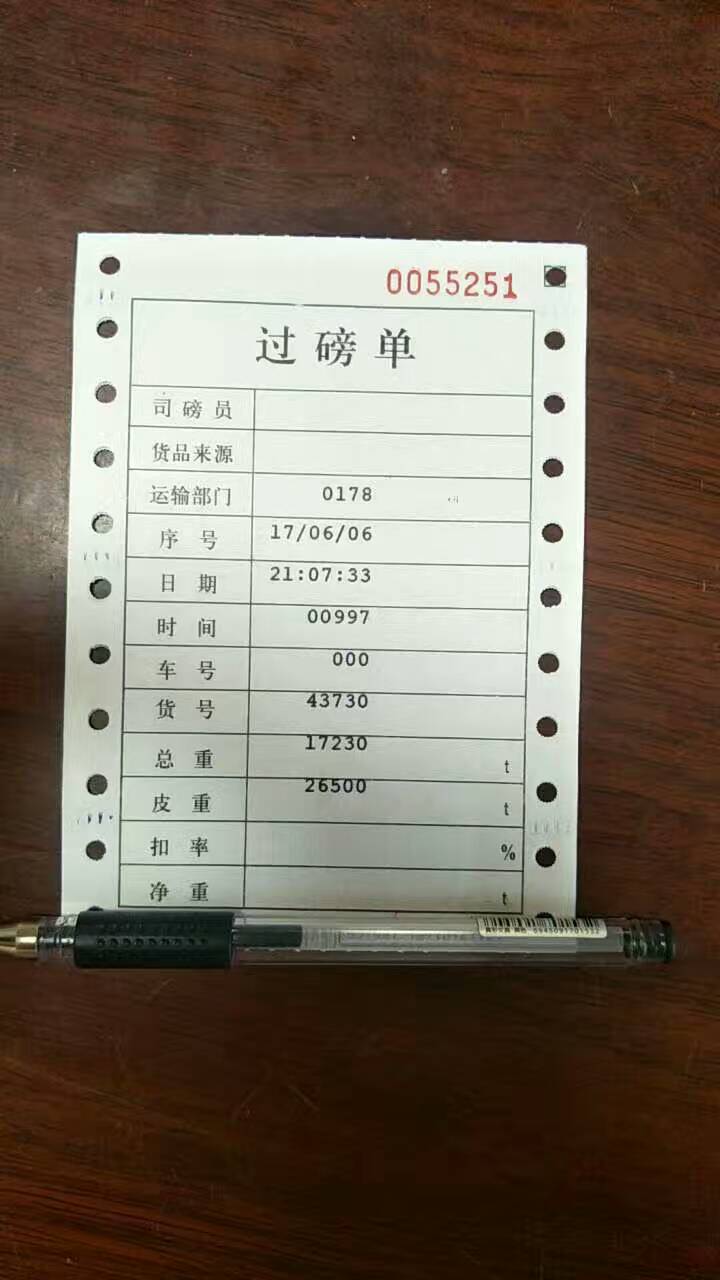 0055251
过磅单
司磅员
货品来源
运输部门 0178
序号 17/06/06
日期 21:07:33
时间 00997
车号 000
货号 43730
总重 17230 t
皮重 26500 t
扣率 %
净重 t